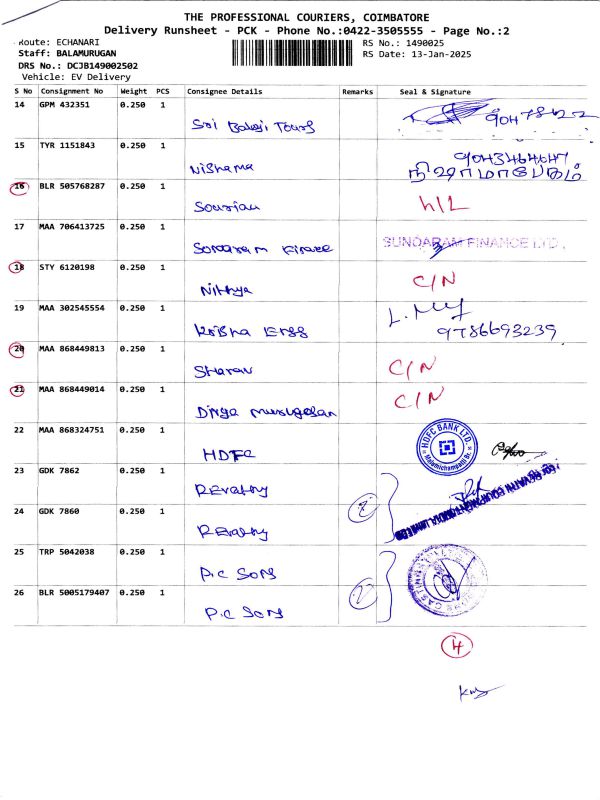 THE PROFESSIONAL COURIERS, COIMBATORE
Delivery Runsheet - PCK - Phone No.:0422-3505555 - Page No.:2
Route: ECHANARI
RS No.: 1490025
Staff: BALAMURUGAN
RS Date: 13-Jan-2025
DRS No.: DCJB149002502
Vehicle: EV Delivery
S No Consignment No Weight PCS Consignee Details Remarks Seal & Signature
14 GPM 432351 0.250 1 Sri Balaji Tours
15 TYR 1151843 0.250 1 Nishama 9043464647
16 BLR 505768287 0.250 1
17 MAA 706413725 0.250 1 SUNDARAM FINANCE LTD.
18 STY 6120198 0.250 1 Nithya C/N
19 MAA 302545554 0.250 1 Krisha Engg 9786693239
20 MAA 868449813 0.250 1 Sharan C/N
21 MAA 868449014 0.250 1 Divya Murugesan C/N
22 MAA 868324751 0.250 1 HDFC HDFC BANK LTD.
23 GDK 7862 0.250 1 REvathy
24 GDK 7860 0.250 1 REvathy 2
25 TRP 5042038 0.250 1 P.C Sons
26 BLR 5005179407 0.250 1 P.C Sons 2
4